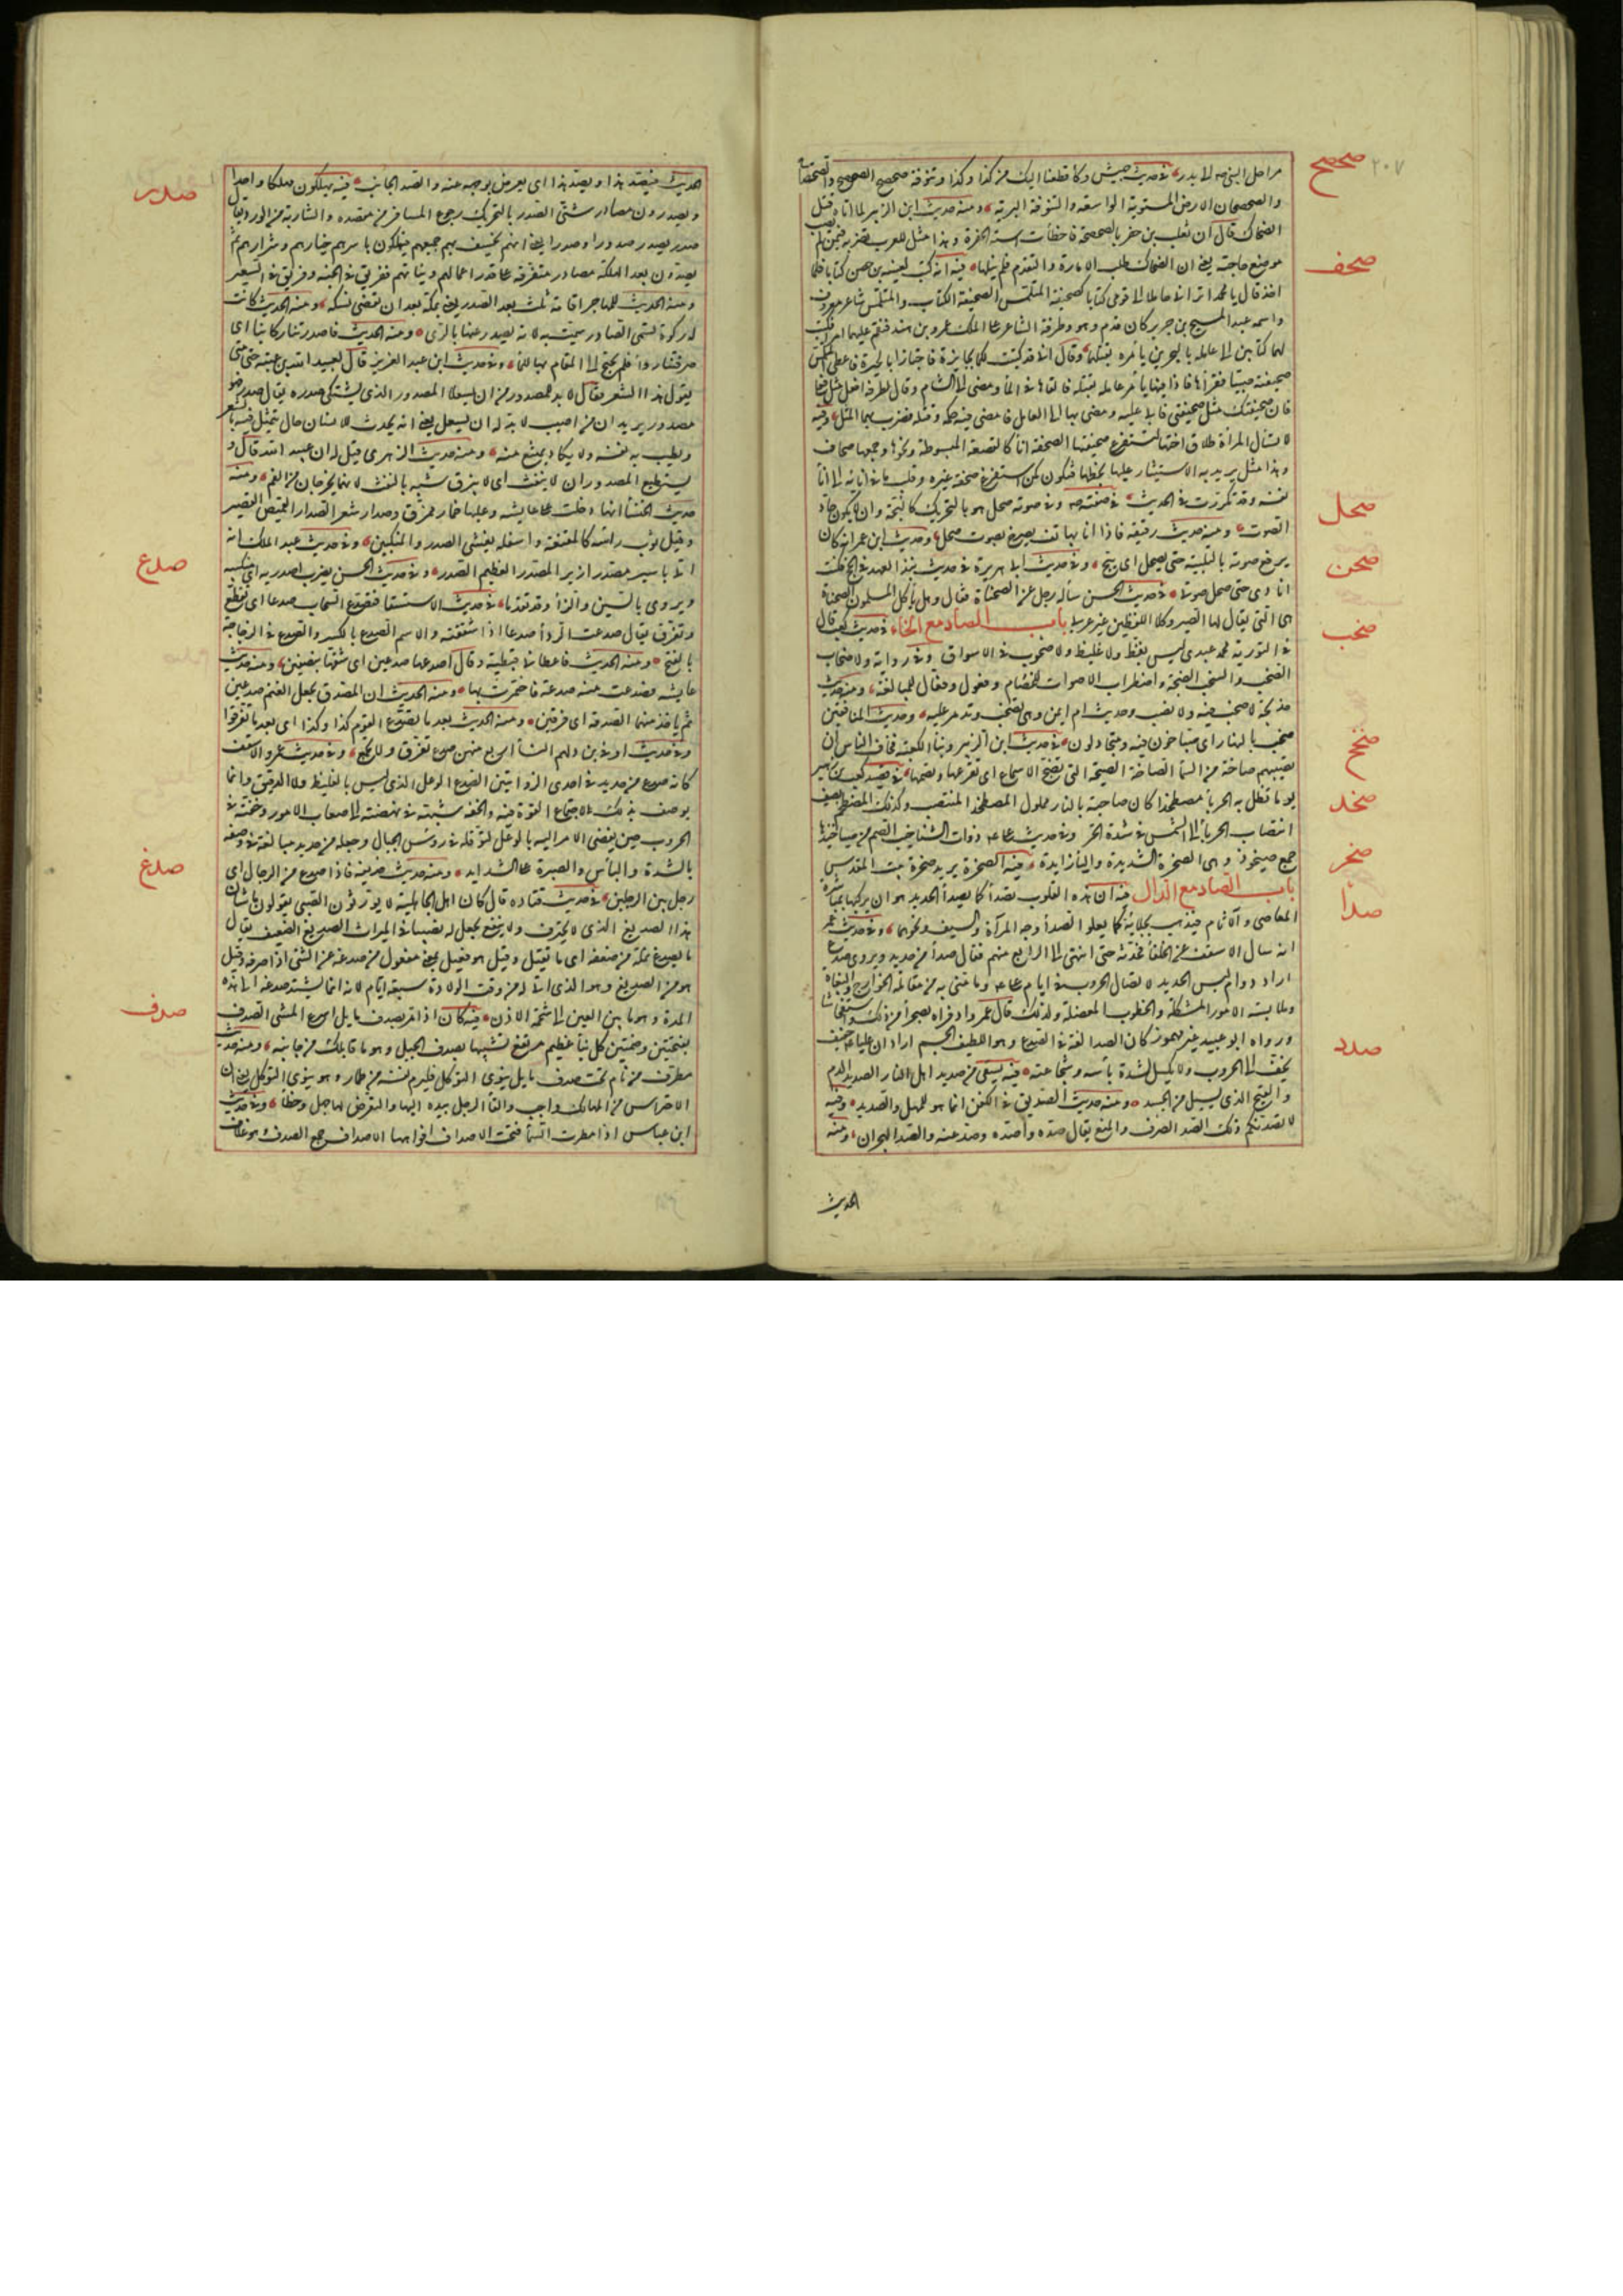 ٢٠٧
صحصح
صحف
صحل
صحن
صخب
صخخ
صخد
صخر
صدأ
صدد
مراصل البنى صه الا بدر في حديث جيش وكأ قطعنا اليك من كذا وكذا وتنوفة صحصح الصحصح والصحصحة
والصحصحان الارض المستوية الواسعة والتنوفة البرية ومنه حديث ابن الزبير لما اتاه قتل
الضحاك قال ان ثعلب بن حفر بالصحصحة فاخطأت استه الحفرة وهذا مثل للعرب تضربه فيمن لم يصب
موضع حاجته يعني ان الضحاك طلب الامارة والتقدم فلم ينلها فيه انه كتب لعيينه بن حصن كتابا فلما
اخذه قال يا محمد اترانى حاملا الى قومى كتابا كصحيفة المتلمس الصحيفة الكتاب والمتلمس شاعر معروف
واسمه عبد المسيح بن جرير كان قدم هو وطرفة الشاعر على الملك عمرو بن هند فنقم عليهما امرا فكتب
لهما كتابين الى عامله بالبحرين يأمره بقتلهما وقال انى قد كتبت لكما بجايزة فاجتازا بالحيرة فاعطى المتلمس
صحيفته صبيا فقرأها فاذا فيها يأمر عامله بقتله فالقاها فى الماء ومضى الى الشام وقال لطرفة افعل مثل فعلى
فان صحيفتك مثل صحيفتى فابى عليه ومضى بها الى العامل فامضى فيه حكمه وقتله فضرب بهما المثل وفيه
لا تسأل المرأة طلاق اختها لتستفرغ صحيفتها الصحفة اناء كالقصعة المبسوطة ونحوها وجمعها صحاف
وهذا مثل يريد به الاستيثار عليها بحظها فتكون كمن استفرغ صحفة غيره وقلب ما فى انائه الى اناء
نفسه وقد تكررت فى الحديث فى صفته صه وفى صوته صحل هو بالتحريك كالبحة وان لا يكون حاد
الصوت ومنه حديث رقيقة فاذا انا بهاتف يصرخ بصوت صحل وحديث ابن عمر انه كان
يرفع صوته بالتلبية حتى يصحل اى يبح وفى حديث ابى هريرة فى حديث نبذ العهد فى الحج فكنت
انادى حتى صحل صوتى فى حديث الحسن سأله رجل عن الصحناة فقال وهل يأكل المسلمون الصحناة
هى التى يقال لها الصير وكلا اللفظين غير عربى باب الصاد مع الخاء فى حديث كعب قال
فى التورية محمد عبدى ليس بفظ ولا غليظ ولا صخوب فى الاسواق وفى رواية ولا صخاب
الصخب والسخب الضجة واضطراب الاصوات للخصام وفعول وفعال للمبالغة ومنه حديث
خديجة لا صخب فيه ولا نصب وحديث ام ايمن وهى تصخب وتذمر عليه وحديث المنافقين
صخب بالنهار اى صياحون فيه ومتجادلون فى حديث ابن الزبير وبناء الكعبة فخاف الناس ان
تصيبهم صاخة من السماء الصاخة الصيحة التى تصخ الاسماع اى تقرعها وتصمها فى قصيد كعب بن زهير
يوما تظل به الحرباء مصطخدا كان ضاحيه بالنار مملول المصطخد المنتصب وكذلك المصطخم يصف
انتصاب الحرباء الى الشمس فى شدة الحر وفى حديث على عه ذوات الشناخيب الصم من صياخيدها
جمع صيخود وهى الصخرة الشديدة والياء زايدة فيه الصخرة يريد صخرة بيت المقدس
باب الصاد مع الدال فيه ان هذه القلوب تصدأ كما يصدأ الحديد هو ان يركبها بمباشرة
المعاصى والآثام فيذهب بجلائها كما يعلو الصدأ وجه المرآة والسيف ونحوهما وفى حديث عمر
انه سال الاسقف عن الخلفاء فحدثه حتى انتهى الى الرابع منهم فقال صدأ من حديد ويروى صدع
اراد دوام لبس الحديد لاتصال الحروب فى ايام على عه وما منى به من مقاتلة الخوارج والبغاة
وملابسة الامور المشكلة والخطوب المعضلة ولذلك قال عمر وادفراه تضجرا من ذلك واستفحاشا
ورواه ابو عبيد غير مهموز كان الصدا لغة فى الصدع وهو اللطيف الجسم اراد ان عليا عه خفيف
يخف الى الحروب ولا يكسل لشدة بأسه وشجاعته فيه يسقى من صديد اهل النار الصديد الدم
والقيح الذى يسيل من الجسد ومنه حديث الصديق فى الكفن انما هو للمهل والصديد وفيه
لا يصدنكم ذلك الصد الصرف والمنع يقال صده واصده وصد عنه والصد الهجران ومنه
الحديث
صدر
صدع
صدغ
صدف
الحديث فيصد هذا ويصد هذا اى يعرض بوجهه عنه والصد الجانب فيه يهلكون مهلكا واحدا
ويصدرون مصادر شتى الصدر بالتحريك رجوع المسافر من مقصده والشاربة من الورد يقال
صدر يصدر صدورا وصدرا يعنى انهم يخسف بهم جميعهم فيهلكون باسرهم خيارهم وشرارهم ثم
يصدرون بعد الهلكة مصادر متفرقة على قدر اعمالهم ونياتهم ففريق فى الجنة وفريق فى السعير
ومنه الحديث للمهاجر اقامة ثلث بعد الصدر يعنى بمكة بعد ان يقضى نسكه ومنه الحديث كانت
له ركوة تسمى الصادر سميت به لانه يصدر عنها بالرى ومنه الحديث فاصدرتنا ركابنا اى
صرفتنا رواء فلم نحتج الى المقام بها للماء وفى حديث ابن عبد العزيز قال لعبيد الله بن عتبه حتى متى
يقول هذا الشعر فقال لا بد للمصدور من ان يسعلا المصدور الذى يشتكى صدره يقال صدر فهو
مصدور يريد ان من اصيب لا بد له ان يسعل يعنى انه يحدث للانسان حال يتمثل فيه بالشعر
ويطيب به نفسه ولا يكاد يمتنع عنه ومنه حديث الزهرى قيل له ان عبيد الله قال و
يستطيع المصدور ان لا ينفث اى لا يبزق شبه بالنفث لانهما يخرجان من الفم ومنه
حديث الخنساء انها دخلت على عايشه وعليها خمار ممزق وصدار شعر الصدار القميص القصير
وقيل ثوب رأسه كالمقنعة واسفله يغشى الصدر والمنكبين وفى حديث عبد الملك انه
اتى باسير مصدر ازبر المصدر العظيم الصدر وفى حديث الحسن يضرب اصدريه اى منكبيه
ويروى بالسين والزاء وقد تقدما فى حديث الاستسقا فتصدع السحاب صدعا اى تقطع
وتفرق يقال صدعت الرداء صدعا اذا شققته والاسم الصدع بالكسر والصدع فى الزجاجة
بالفتح ومنه الحديث فاعطانى قبطية وقال اصدعها صدعين اى شقها بنصفين ومنه حديث
عايشه فصدعت منه صدعة فاختمرت بها ومنه الحديث ان المصدق يجعل الغنم صدعين
ثم ياخذ منهما الصدقة اى فرقتين ومنه الحديث بعد ما يصدع القوم كذا وكذا اى بعد ما تفرقوا
كانه صدع من حديد فى احدى الروايتين الصدع الوعل الذى ليس بالغليظ ولا الدقيق وانما
يوصف بذلك لاجتماع القوة فيه والخفة شبهه فى نهضته الى صعاب الامور وخفته فى
الحروب حين يفضى الامر اليه بالوعل لتوقله فى رؤس الجبال وجعله من حديد مبالغة فى وصفه
بالشدة والبأس والصبرة على الشدايد ومنه حديث حذيفة فاذا صدع من الرجال اى
رجل بين الرجلين فى حديث قتاده قال كان اهل الجاهلية لا يورثون الصبى يقولون ما شأن
هذا الصديغ الذى لا يحترف ولا ينفع نجعل له نصيبا فى الميراث الصديغ الضعيف يقال
ما يصدغ نملة من ضعفه اى ما يقتل وقيل هو فعيل بمعنى مفعول من صدغه عن الشئ اذا صرفه وقيل
هو من الصديغ وهو الذى اتى له من وقت الولادة سبعة ايام لانه انما يشتد صدغه الى هذه
المدة وهو ما بين العين الى شحمة الاذن فيه كان اذا مر بصدف مايل اسرع المشى الصدف
بفتحتين وضمتين كل بناء عظيم مرتفع تشبيها بصدف الجبل وهو ما قابلك من جانبه ومنه حديث
مطرف من نام تحت صدف مايل ينوى التوكل فليرم نفسه من طمار وهو ينوى التوكل يعنى ان
الاحتراس من المهالك واجب والقاء الرجل بيده اليها والتعرض لها جهل وخطأ وفى حديث
ابن عباس اذا مطرت السماء فتحت الاصداف افواهها الاصداف جمع الصدف وهو غلاف